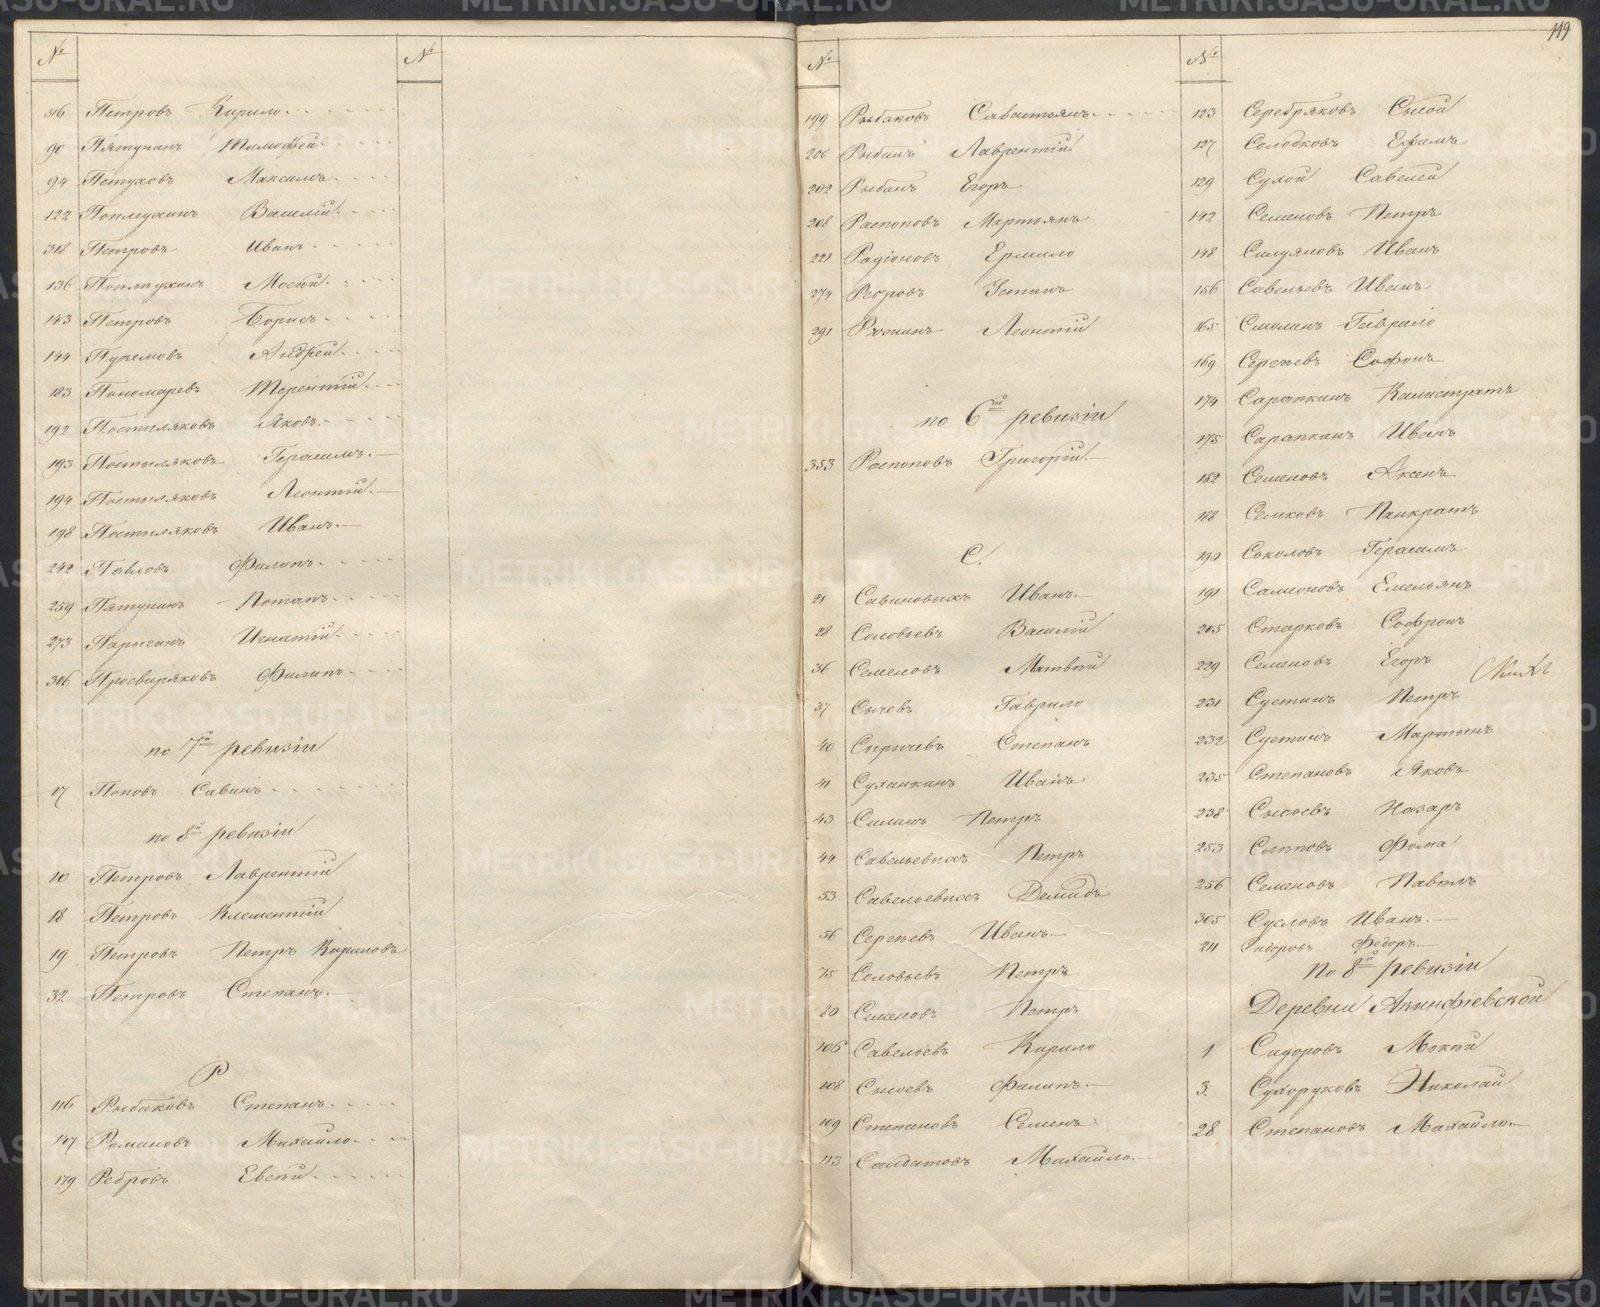 №
316 Петровъ Кирило
90 Пятунинъ Тимофей
94 Петуховъ Максимъ
122 Василій
318 Петровъ Иванъ
136 Мокѣй
143 Петровъ Борисъ
144 Андрей
183 Пономаревъ Терентій
192 Постыляковъ Яковъ
193 Постыляковъ Герасимъ
194 Постыляковъ Леонтій
198 Постыляковъ Иванъ
242 Павловъ Филипъ
259 Пятунинъ Потапъ
273 Игнатій
306 Просвиряковъ Филипъ
по 7й ревизіи
17 Поповъ Савинъ
по 8й ревизіи
10 Петровъ Лаврентій
18 Петровъ Клементій
19 Петровъ Петръ Кириловъ
32 Петровъ Степанъ
Р
116 Рыбаковъ Степанъ
147 Романовъ Михайло
179 Ребровъ Евсѣй
№
119
№
199 Рыбаковъ Савастьянъ
200 Рыбинъ Лаврентій
202 Рыбинъ Егоръ
208 Распоповъ Мартьянъ
221 Радіоновъ Ермило
274 Устинъ
291 Леонтій
по 6й ревизіи
353 Распоповъ Григорій
С.
21 Савиновыхъ Иванъ
28 Соловьевъ Василій
36 Семеновъ Матвѣй
37 Сычевъ Гаврило
40 Степанъ
41 Суханкинъ Иванъ
43 Силинъ Петръ
44 Савельевыхъ Петръ
53 Савельевыхъ Демидъ
56 Сергѣевъ Иванъ
75 Соловьевъ Петръ
80 Семеновъ Петръ
106 Савельевъ Кирило
108 Сысоевъ Филипъ
109 Степановъ Семенъ
113 Салдатовъ Михайло
№
123 Серебряковъ Сысой
127 Солодковъ Ефимъ
129 Сухой Савелей
142 Семеновъ Петръ
148 Силуяновъ Иванъ
156 Савельевъ Иванъ
165 Смолинъ Гаврило
169 Сергѣевъ Софонъ
174 Сарапкинъ Калистратъ
175 Сарапкинъ Иванъ
182 Семеновъ Аксенъ
188 Семковъ Панкратъ
190 Соколовъ Герасимъ
191 Самсоновъ Емельянъ
205 Старковъ Софронъ
229 Семеновъ Егоръ
231 Суетинъ Петръ
232 Суетинъ Мартынъ
235 Степановъ Яковъ
238 Сысоевъ Назаръ
253 Слѣповъ Фома
256 Семеновъ Павелъ
305 Сусловъ Иванъ
211 Сидоровъ Федоръ
По 8й ревизіи
Деревни Акинфіевской
1 Сидоровъ Мокѣй
3. Сухоруковъ Николай
28 Степановъ Михайло
METRIKI.GASO-URAL.RU